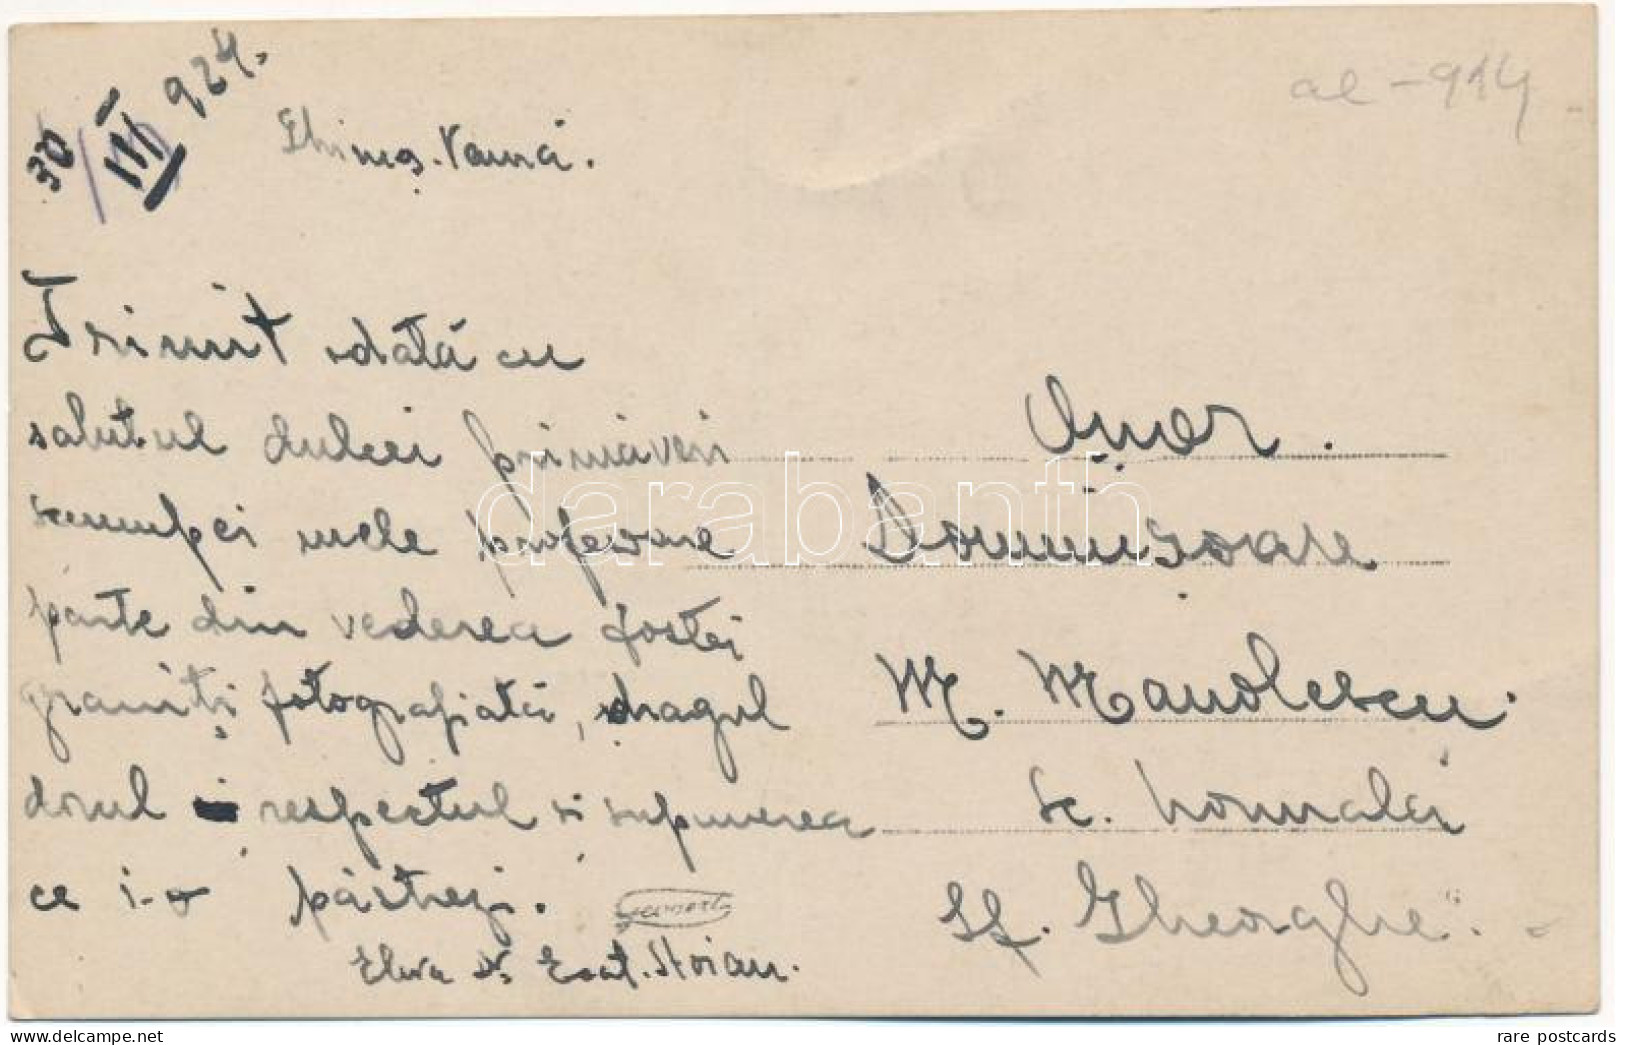 30/III 924.
Ghimeș-Vamă.
al-914
Trimit odată cu
salutul dulcei primăveri
scumpei mele profesoare
parte din vederea fostei
graniți fotografiată, dragul
dorul respectul si supunerea
ce i-o păstrez.
Eleva Ecat. Stoian.
Onor.
Domnișoare
M. Manolescu.
Sc. normală
Sf. Gheorghe.
darabanth
delcampe.net
rare postcards